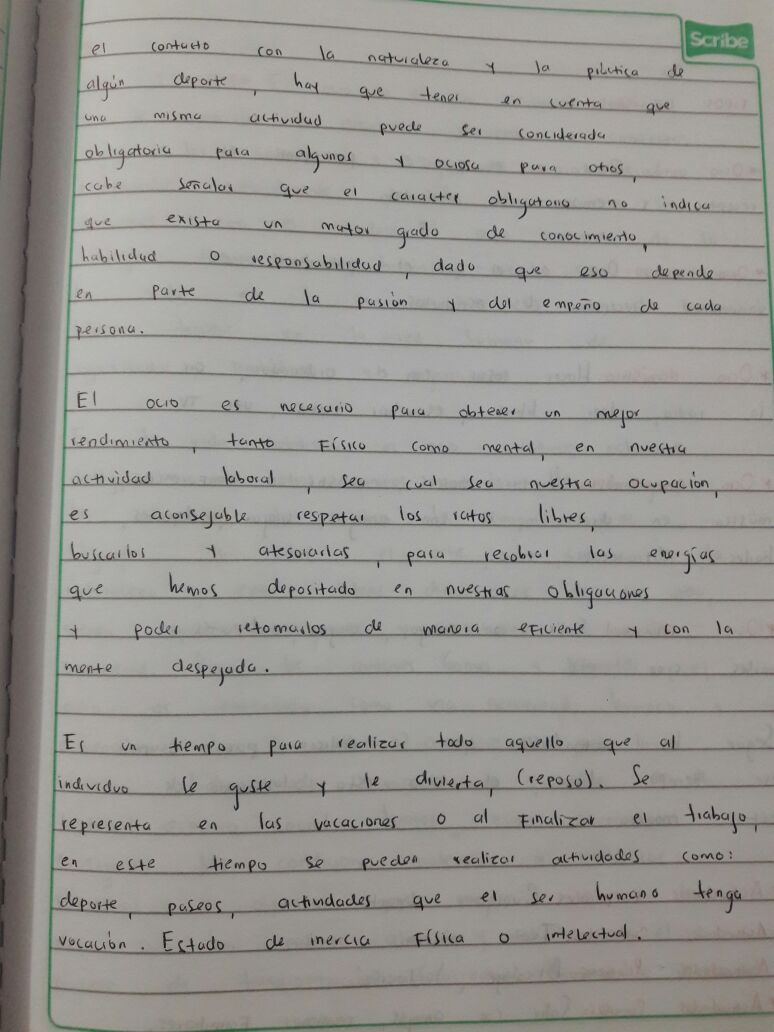 Scribe
el contacto con la naturaleza y la práctica de
algún deporte, hay que tener en cuenta que
una misma actividad puede ser conciderada
obligatoria para algunos y ociosa para otros,
cabe señalar que el caracter obligatorio no indica
que exista un mator grado de conocimiento,
habilidad o responsabilidad, dado que eso depende
en parte de la pasión y del empeño de cada
persona.
El ocio es necesario para obtener un mejor
rendimiento, tanto Físico como mental, en nuestra
actividad laboral, sea cual sea nuestra ocupación,
es aconsejable respetar los ratos libres,
buscarlos y atesorarlas, para recobrar las energías
que hemos depositado en nuestras obligaciones
y poder retomarlos de manera eFiciente y con la
mente despejada.
Es un tiempo para realizar todo aquello que al
individuo le guste y le divierta, (reposo). Se
representa en las vacaciones o al Finalizar el trabajo,
en este tiempo se pueden realizar actividades como:
deporte, paseos, actividades que el ser humano tenga
vocación. Estado de inercia Física o intelectual.